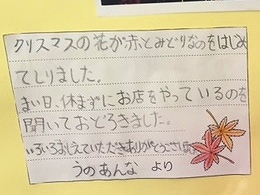 クリスマスの花が赤とみどりなのをはじめ
てしりました。
まい日、休まずにお店をやっているのを
聞いておどろきました。
いろいろおしえていただきありがとうござい
うのあんな より